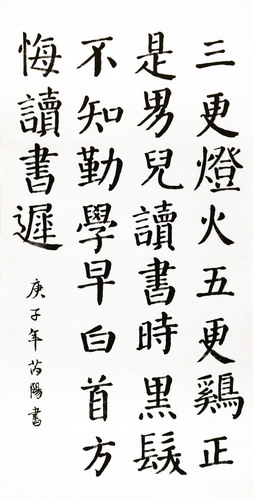 三更燈火五更鷄正
是男兒讀書時黑髮
不知勤學早白首方
悔讀書遲
庚子年芮陽書